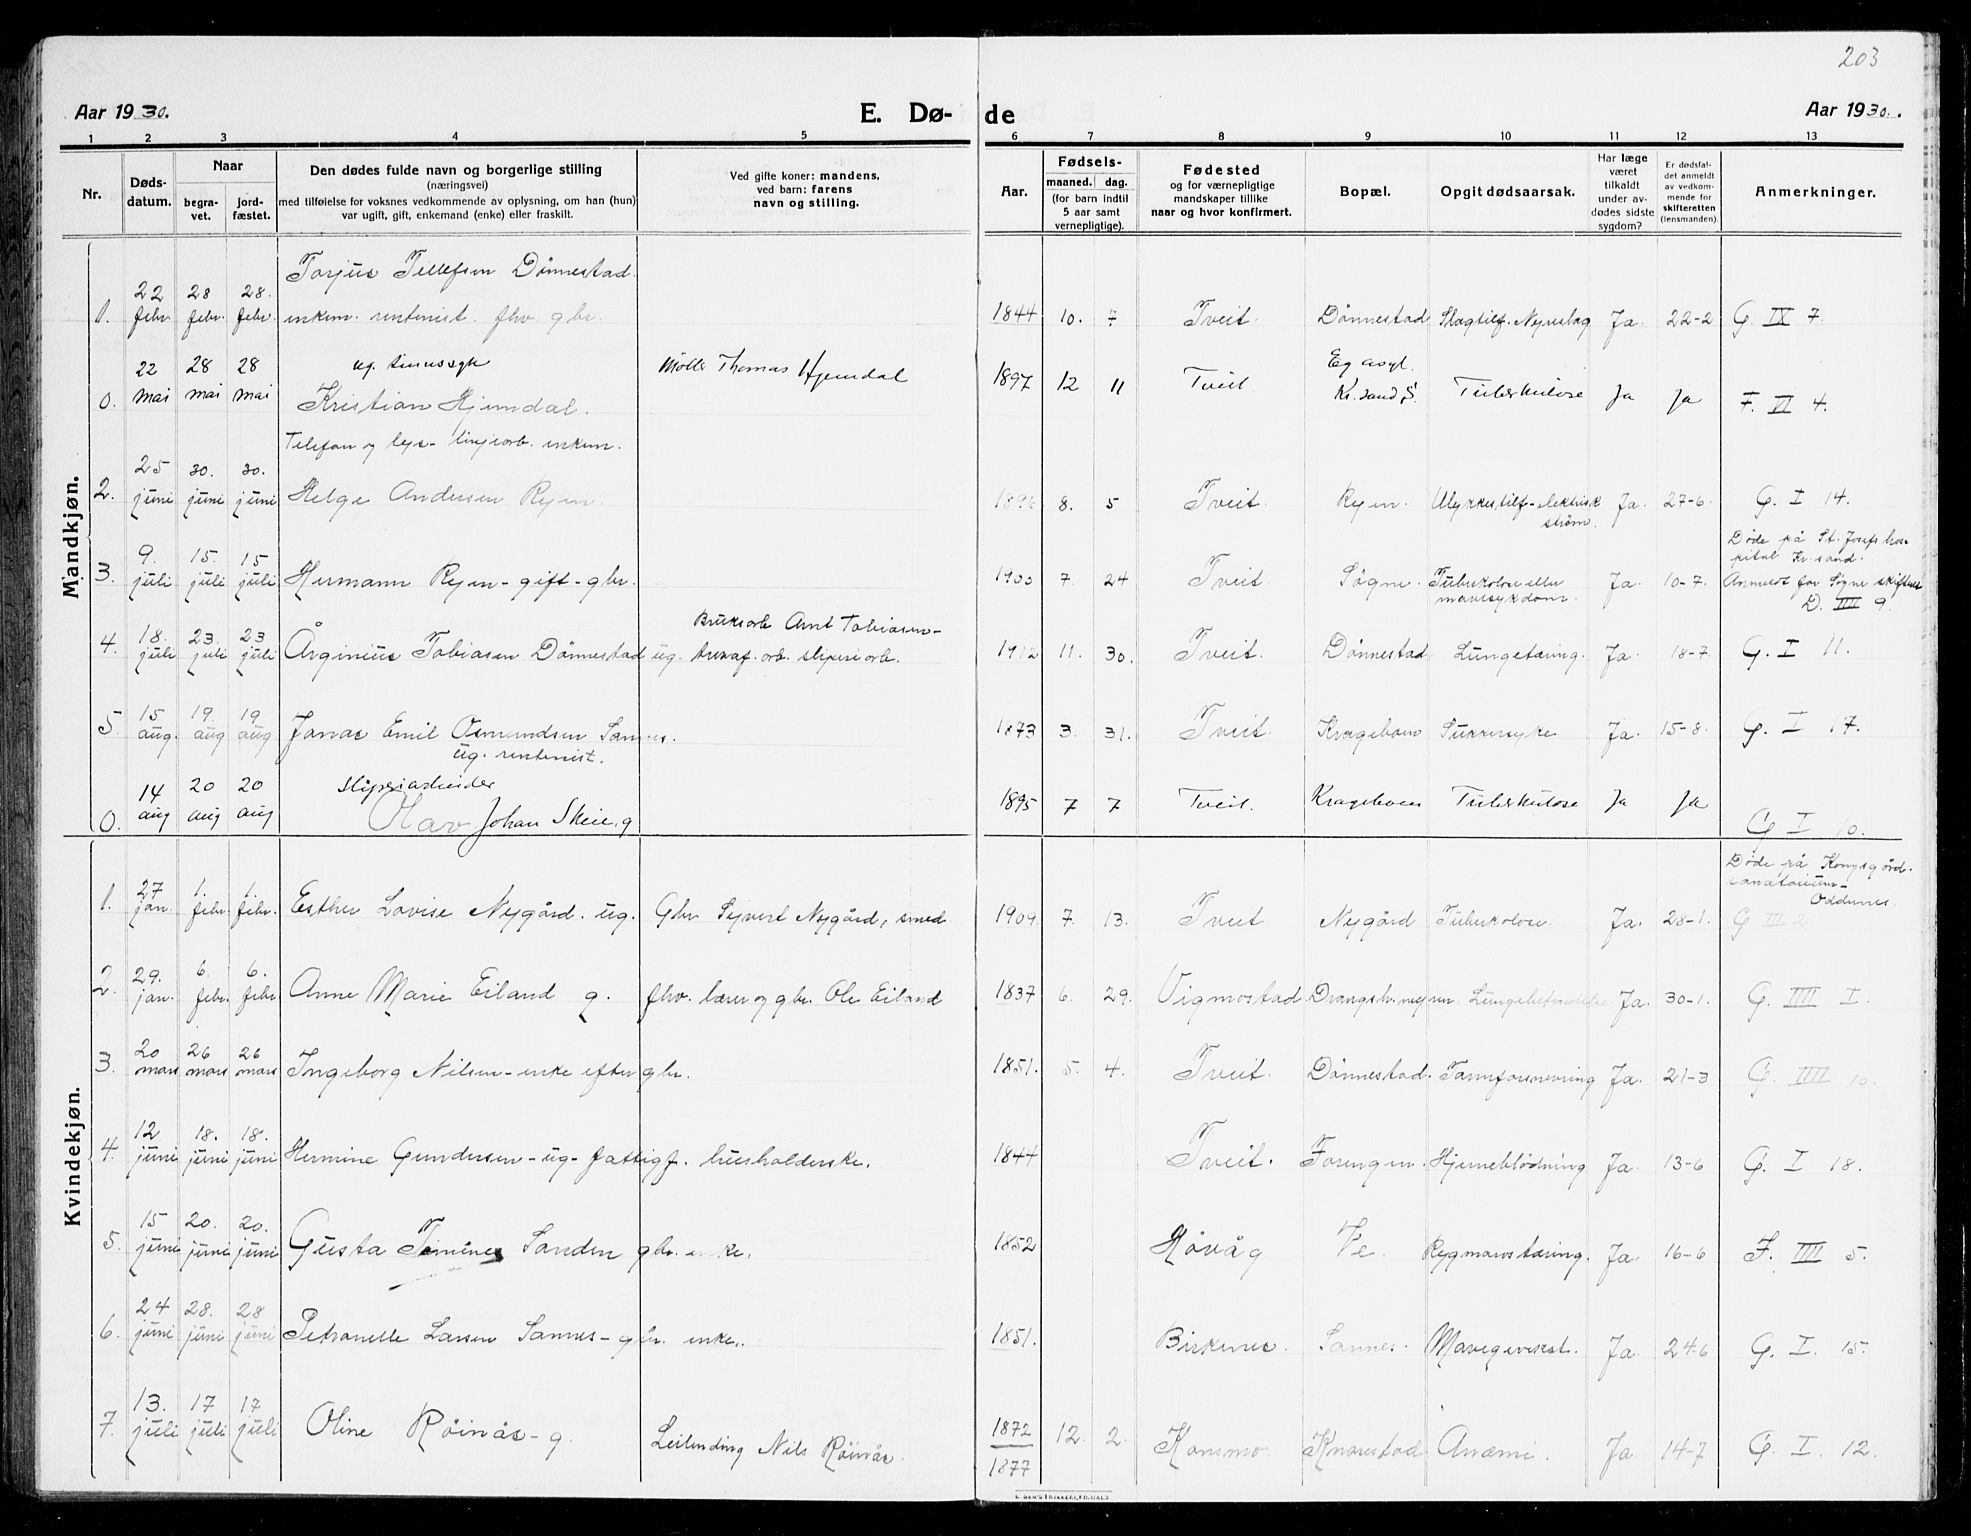 203
Aar 1930.
E. Dø-
de
Aar 1930.
1 2 3 4 5 6 7 8 9 10 11 12 13
Nr.
Døds-
datum.
Naar
begra-
vet.
jord-
fæstet.
Den dødes fulde navn og borgerlige stilling
(næringsvei)
med tilføielse for voksnes vedkommende av oplysning, om han (hun)
var ugift, gift, enkemand (enke) eller fraskilt.
Ved gifte koner: mandens,
ved barn: farens
navn og stilling.
Aar.
Fødsels-
maaned. dag.
(for barn indtil
5 aar samt
vernepligtige).
Fødested
og for værnepligtige
mandskaper tillike
naar og hvor konfirmert.
Bopæl.
Opgit dødsaarsak.
Har læge
været
tilkaldt
under av-
dødes sidste
sygdom?
Er dødsfal-
det anmeldt
av vedkom-
mende for
skifteretten
(lensmanden).
Anmerkninger.
Mandkjøn.
Torjus Tellefsen Dønnestad.
1. 22 febr. 28 febr. 28. febr. enkem. rentenist. fhv. gbr. 1844 10. 7 Tveit. Dønnestad Slagtilf. Ja. 22-2 G. IX 7.
ug. sinnssyk
0. 22 mai 28 mai 28 mai Kristian Hjemdal. Møller Thomas Hjemdal 1897 12 11 Tveit Eg asyl. Kr.sand S. Tuberkulose Ja Ja F. VI 4.
Telefon og lys- linjearb. enkem.
2. 25 juni 30. juni 30. juni Helge Andersen Ryen. 1896 8. 5 Tveit. Ryen. Ulykkestilf- elektrisk strøm. Ja. 27-6. G. I 14.
3. 9. juli 15. juli 15 juli Hermann Ryen-gift-gbr. 1900 7. 24 Tveit. Søgne. Tuberkolose eller mavesykdom. Ja. 10-7. Døde på St. Josefs hos-
pital Kr.sand.
Anmeldt for Søgne skifteret
D. IIII 9.
4. 18. juli 23. juli 23 juli Årginius Tobiasen Dønnestad ug. Bruksarb Arnt Tobiasen- arb. sliperiarb. 1912 11. 30. Tveit. Dønnestad. Lungetæring. Ja. 18-7. G. I 11.
5. 15 aug. 19. aug 19 aug Jonas Emil Osmundsen Sannes.
ug. rentenist. 1873 3. 31. Tveit. Krageboen Sukkersyke Ja. 15-8. G. I 17.
sliperiarbeider
0. 14 aug 20 aug 20 aug Olav Johan Skeie, g 1895 7 7 Tveit. Krageboen Tuberkulose Ja Ja G I 10.
Kvindekjøn.
1. 27 jan. 1. febr. 1. febr. Esther Lovise Nygård. ug. Gbr Syvert Nygård, smed 1909. 7. 13. Tveit Nygård Tuberkolose. Ja. 28-1. Døde på Kongsgård-
sanatorium-
Oddernes.
G III 2.
2. 29. jan. 6. febr. 6. febr Anne Marie Eiland g. fhv. lærer og gbr. Ole Eiland 1837 6. 29. Vigmostad. Ja. 30-1. G. IIII I.
3. 20 mars 26 mars 26 mars Ingeborg Nilsen-enke efter gbr. 1851. 5. 4. Tveit. Dønnestad. Tarmforsnevring Ja. 21-3 G. IIII 10.
4. 12 juni 18. juni 18. juni Hermine Gundersen-ug-fattigf. husholderske. 1844 Tveit. Forengen. Hjerneblødning Ja. 13-6 G. I 18.
5. 15 juni 20. juni 20. juni Gusta Sanden gbr. enke. 1852 Høvåg Ve. Rygmarvstæring. Ja. 16-6 F. IIII 5.
6. 24 juni 28. juni 28 juni Petronelle Larsen Sannes-gbr. enke. 1851. Birkenes. Sannes. Ja. 24-6 G. I. 15.
7. 13. juli 17 juli 17 juli Oline Røinås-g. Leilending Nils Røinås. 1872 1877 12. 2. Konsmo. Knarestad Anæmi. Ja. 14-7 G. I. 12.